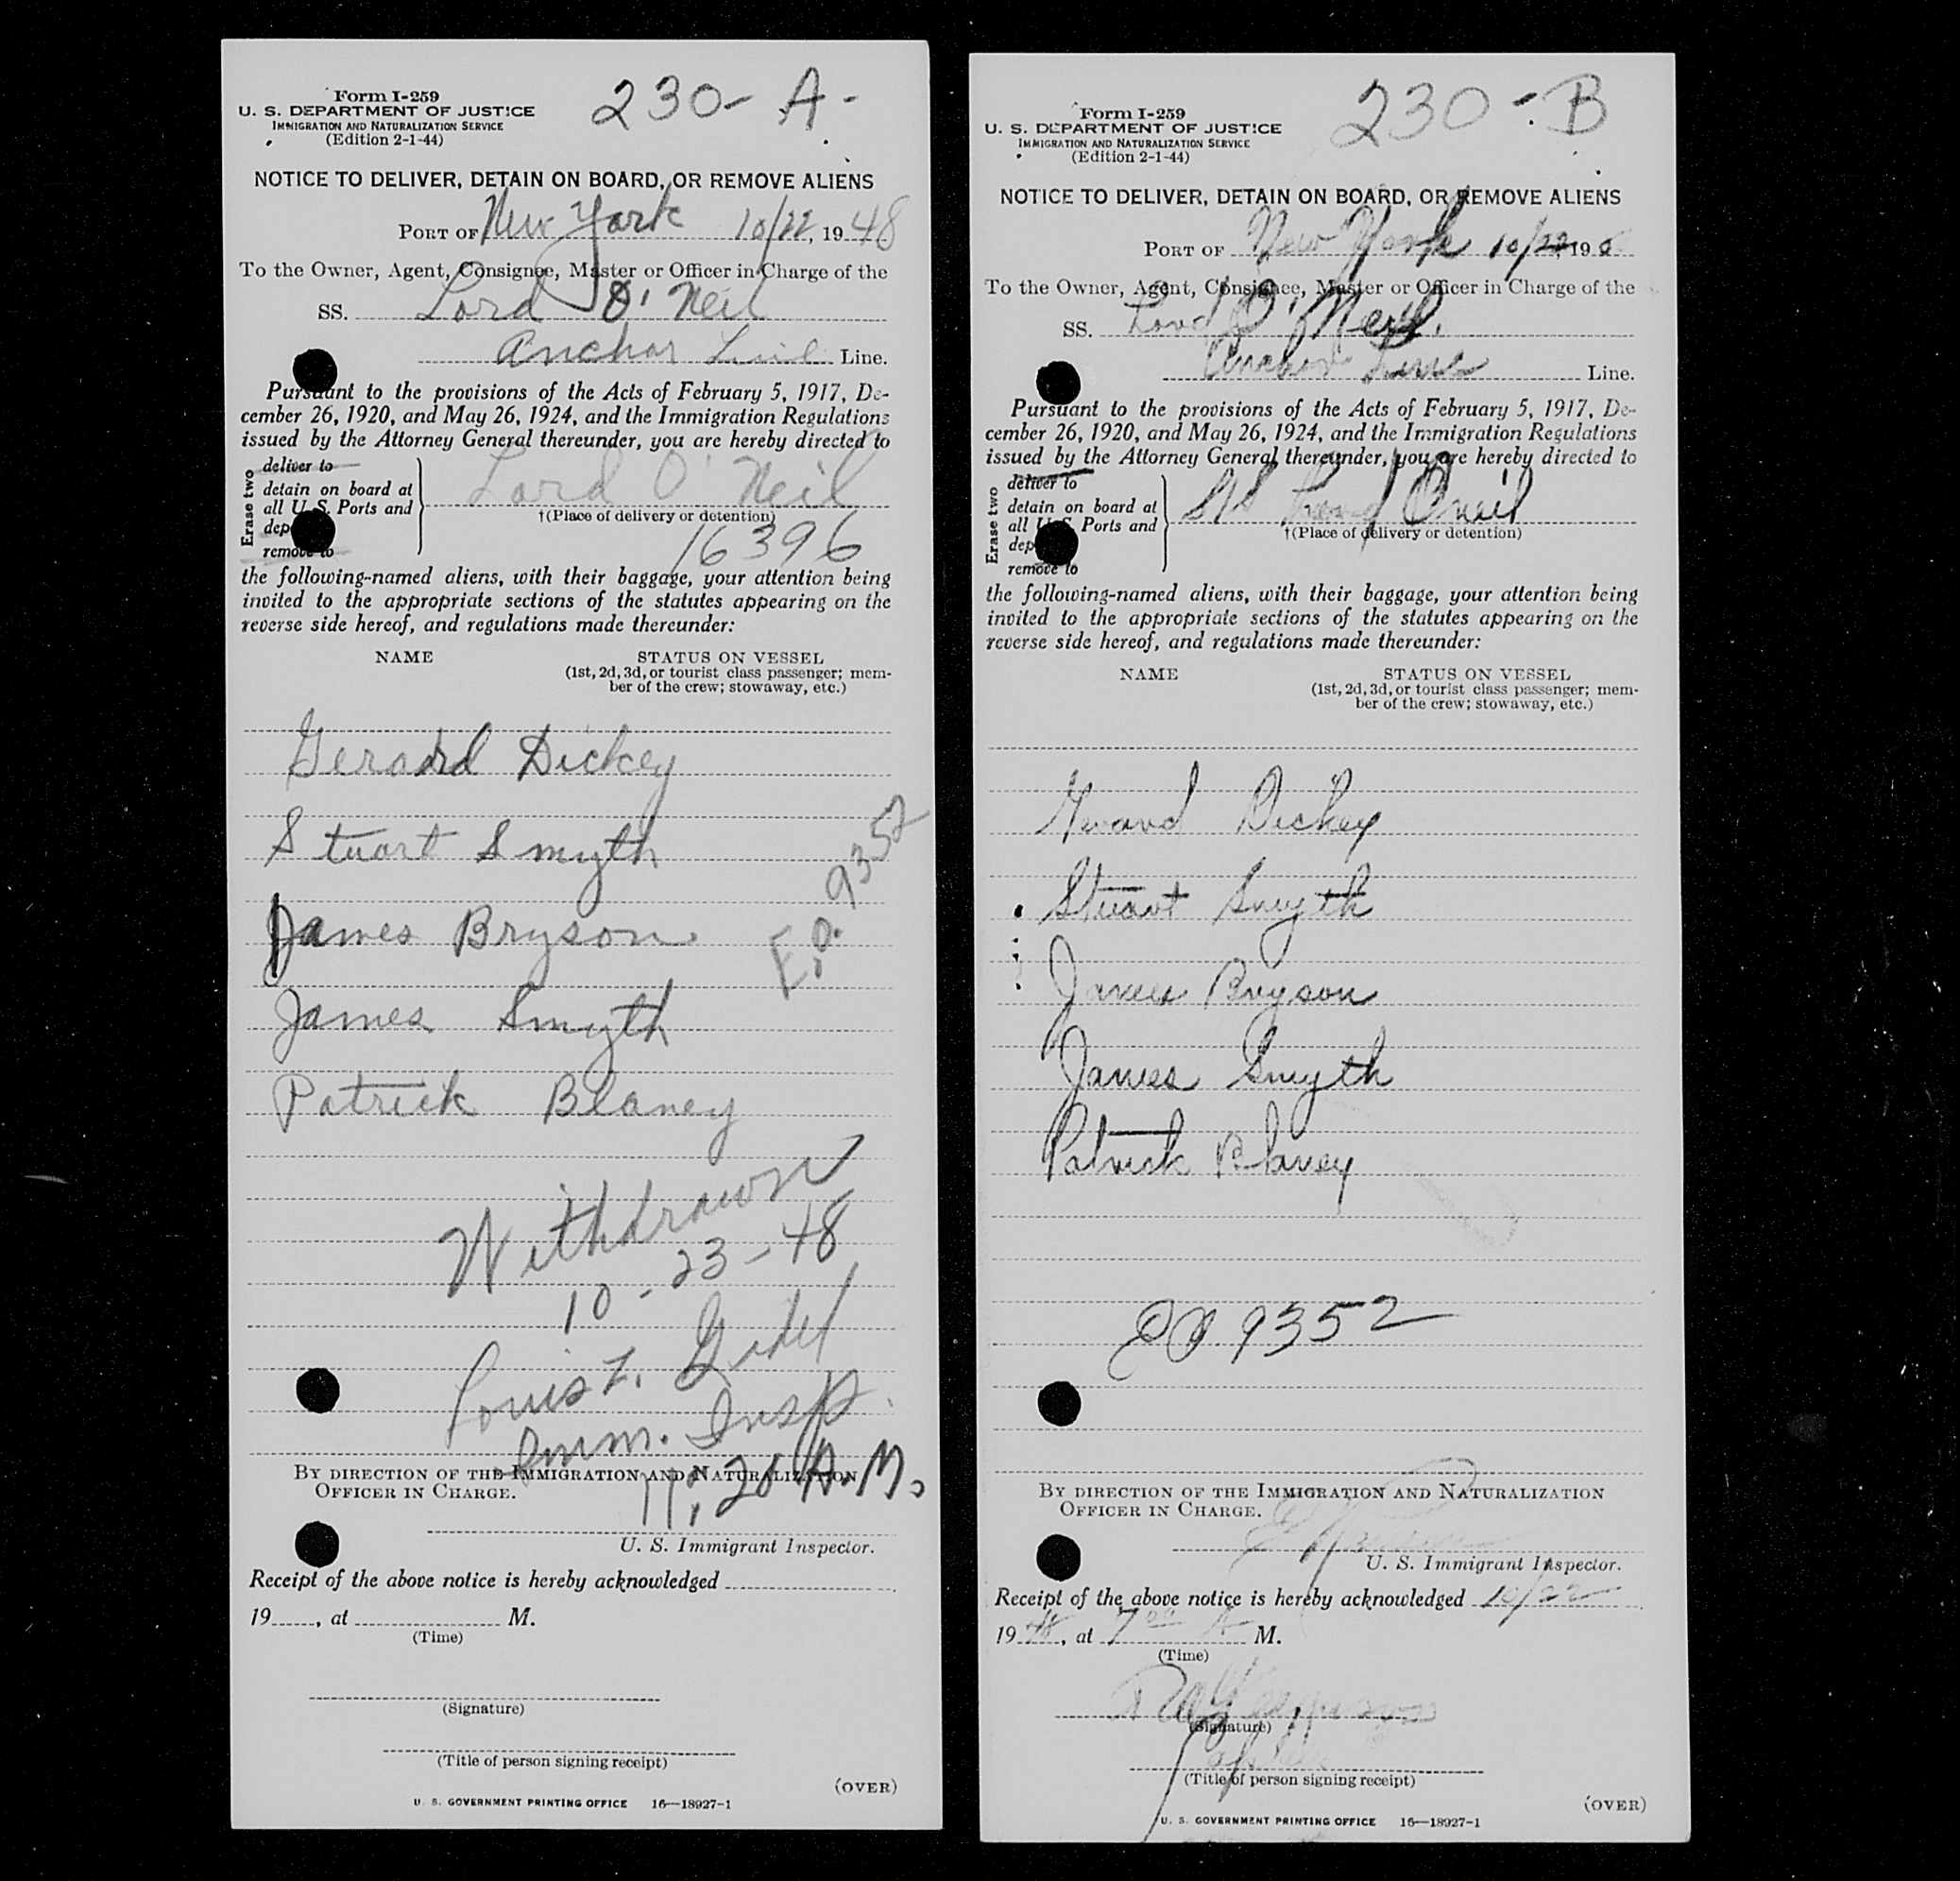 Form I-259
U. S. DEPARTMENT OF JUSTICE
IMMIGRATION AND NATURALIZATION SERVICE
(Edition 2-1-44)
230- A-
NOTICE TO DELIVER, DETAIN ON BOARD, OR REMOVE ALIENS
PORT OF New York 10/22, 1948
To the Owner, Agent, Consignee, Master or Officer in Charge of the
SS. Lord O'Neil
Anchor Line Line.
Pursuant to the provisions of the Acts of February 5, 1917, De-
cember 26, 1920, and May 26, 1924, and the Immigration Regulations
issued by the Attorney General thereunder, you are hereby directed to
Erase two
deliver to
detain on board at
all U. S. Ports and
dep
remove to
Lord O'Neil
†(Place of delivery or detention)
16396
the following-named aliens, with their baggage, your attention being
invited to the appropriate sections of the statutes appearing on the
reverse side hereof, and regulations made thereunder:
NAME STATUS ON VESSEL
(1st, 2d, 3d, or tourist class passenger; mem-
ber of the crew; stowaway, etc.)
Gerard Dickey
Stuart Smyth
James Bryson
E.O. 9352
James Smyth
Patrick Blaney
Withdrawn
10-23-48
Louis
Imm. Insp.
11:20 A.M.
BY DIRECTION OF THE IMMIGRATION AND NATURALIZATION
OFFICER IN CHARGE.
U. S. Immigrant Inspector.
Receipt of the above notice is hereby acknowledged
19 , at M.
(Time)
(Signature)
(Title of person signing receipt)
(OVER)
U. S. GOVERNMENT PRINTING OFFICE 16—18927-1
Form I-259
U. S. DEPARTMENT OF JUSTICE
IMMIGRATION AND NATURALIZATION SERVICE
(Edition 2-1-44)
230-B
NOTICE TO DELIVER, DETAIN ON BOARD, OR REMOVE ALIENS
PORT OF New York 10/22 19
To the Owner, Agent, Consignee, Master or Officer in Charge of the
SS. Lord O'Neil.
Anchor Line Line.
Pursuant to the provisions of the Acts of February 5, 1917, De-
cember 26, 1920, and May 26, 1924, and the Immigration Regulations
issued by the Attorney General thereunder, you are hereby directed to
Erase two
deliver to
detain on board at
all U. S. Ports and
dep
remove to
SS Lord Oneil
†(Place of delivery or detention)
the following-named aliens, with their baggage, your attention being
invited to the appropriate sections of the statutes appearing on the
reverse side hereof, and regulations made thereunder:
NAME STATUS ON VESSEL
(1st, 2d, 3d, or tourist class passenger; mem-
ber of the crew; stowaway, etc.)
Gerard Dickey
Stuart Smyth
James Bryson
James Smyth
Patrick Blaney
EO 9352
BY DIRECTION OF THE IMMIGRATION AND NATURALIZATION
OFFICER IN CHARGE.
U. S. Immigrant Inspector.
Receipt of the above notice is hereby acknowledged 10/22
1948, at 7 00 A M.
(Time)
(Signature)
(Title of person signing receipt)
(OVER)
U. S. GOVERNMENT PRINTING OFFICE 16—18927-1